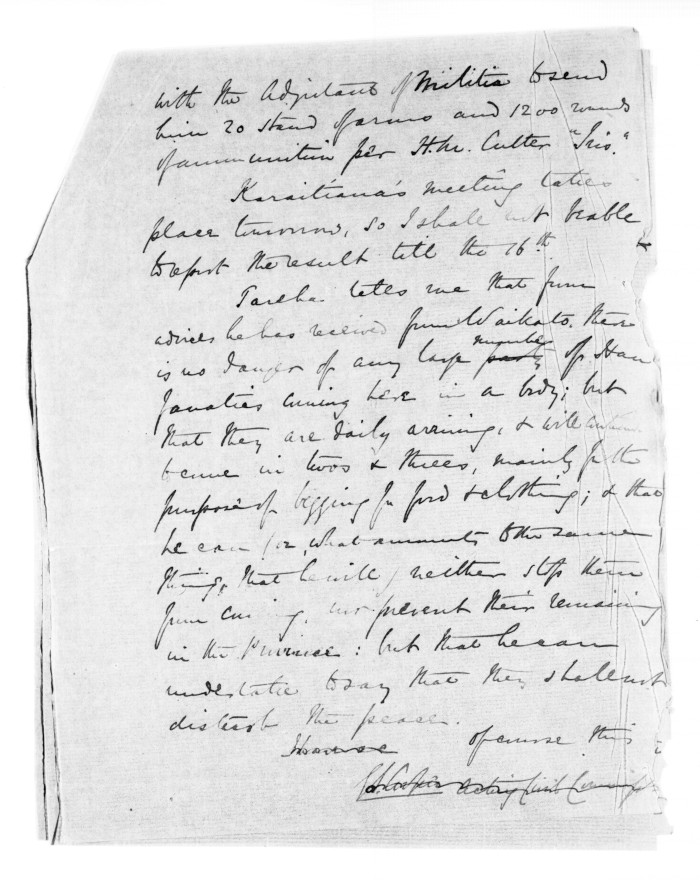 with the Adjutant of Militia to send
him 20 stand of arms and 1200 rounds
of ammunition per H.M. Cutter "Iris."
Karaitiana's meeting takes
place tomorrow, so I shall not be able
to report the result till the 16th
Tareha tells me that from
advices he has received from Waikato there
is no danger of any large party number of Hau
fanatics coming here in a body; but
that they are daily arriving, & will
come in twos & threes, mainly for the
purpose of begging for food & clothing; & that
he can (or, what amounts to the same
thing, that he will) neither stop them
from coming, nor prevent their remaining
in the Province: but that he can
undertake to say that they shall not
disturb the peace.
of course this
Acting Civil